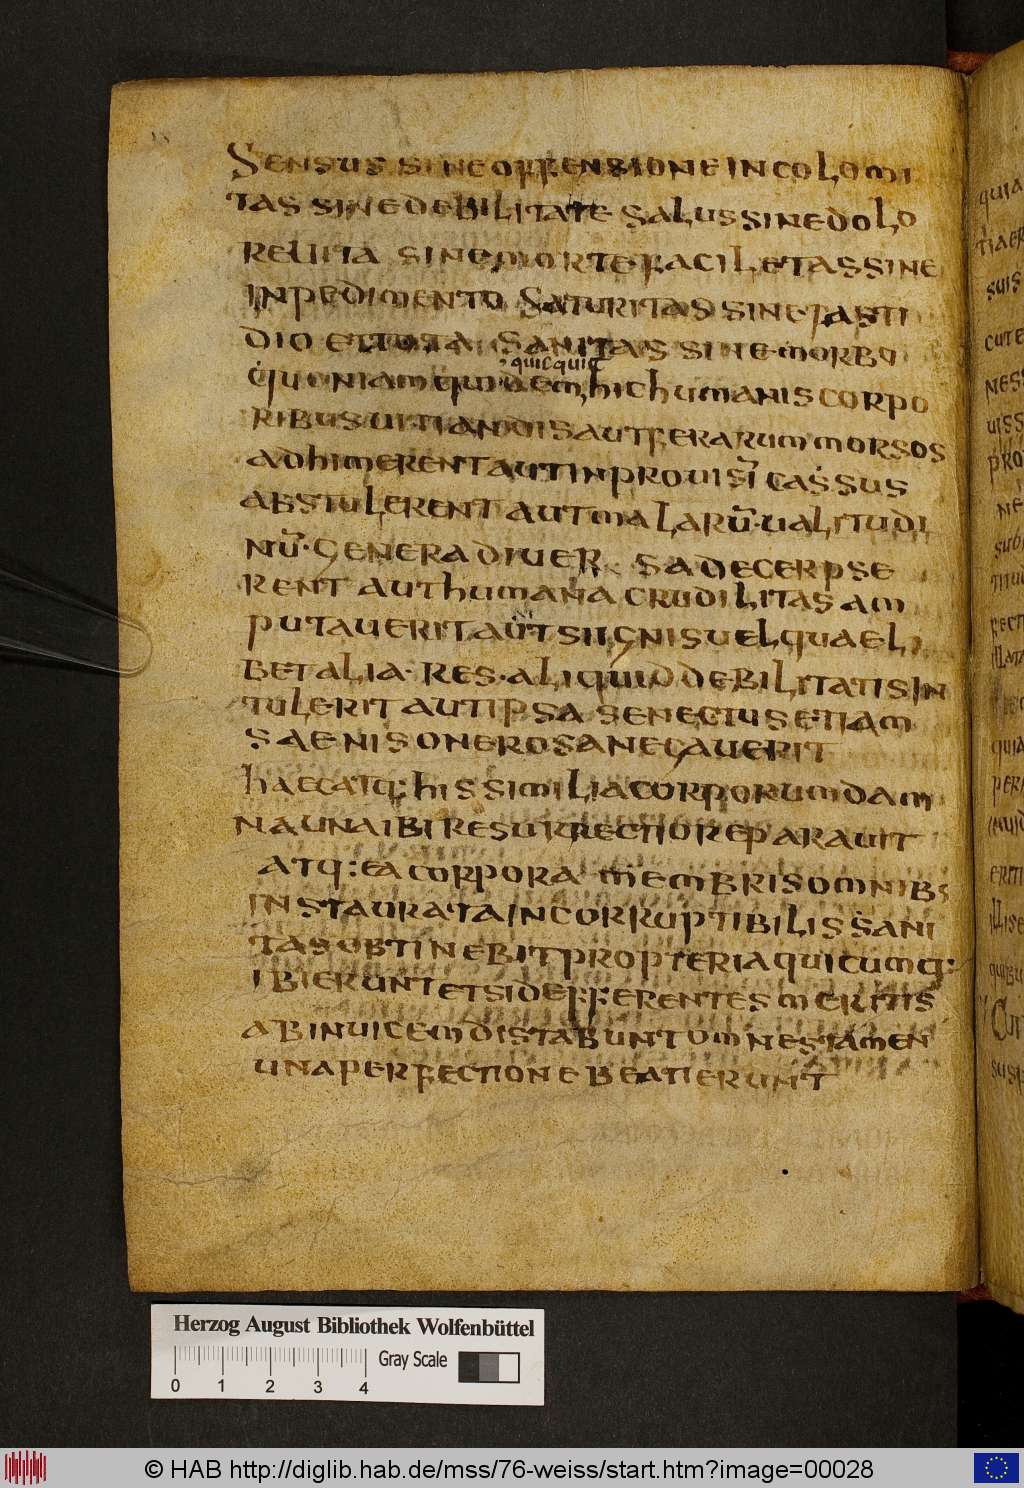 Sensus sine offensione incolomi
tas sine debilitate salus sine dolo
re uita sine morte faciletas sine
inpedimento saturitas sine fasti
dio et tota sanitas sine morbo
quicquid
quoniam quidem hic humanis corpo
ribus uitiandis aut ferarum morsos
adhimerent aut inprouisi cassus
abstulerent aut malarū ualitudi
nū genera diuer sa decerpse
rent aut humana crudilitas am
putauerit aut si ignis uel quael
bet alia res aliquid debilitatis in
tulerit aut ipsa senectus etiam
saenis onerosa necauerit
haec atq: his similia corporum dam
na una ibi resurrectio reparauit
atq: ea corpora membris omnibs
instaurata incorruptibilis sani
tas obtinebit propteria quicumq:
ibi erunt etsi defferentes meritis
ab inuicem distabunt omnes tamen
una perfectione beati erunt
quia
suis
per
ne
Herzog August Bibliothek Wolfenbüttel
Gray Scale
0 1 2 3 4
© HAB http://diglib.hab.de/mss/76-weiss/start.htm?image=00028